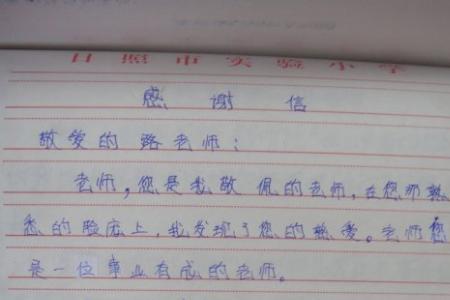 日照市实验小学
感谢信
敬爱的路老师：
老师，您是我敬佩的老师，在您那熟
悉的脸庞上，我发现了您的慈爱。老师您
是一位事业有成的老师。